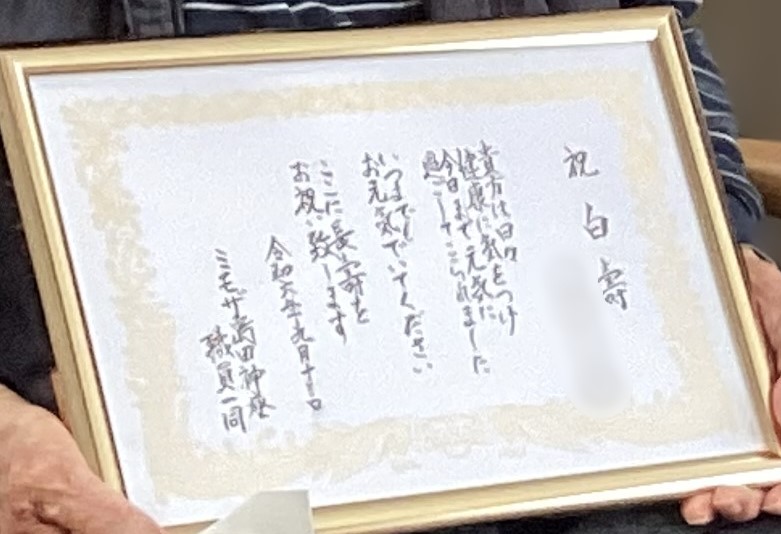 祝 白壽
貴方は日々
健康に気をつけ
今日まで元気に
過ごしてこられました
いつまでも
お元気でいてください
ここに長寿を
お祝い致します
令和六年九月十日
職員一同